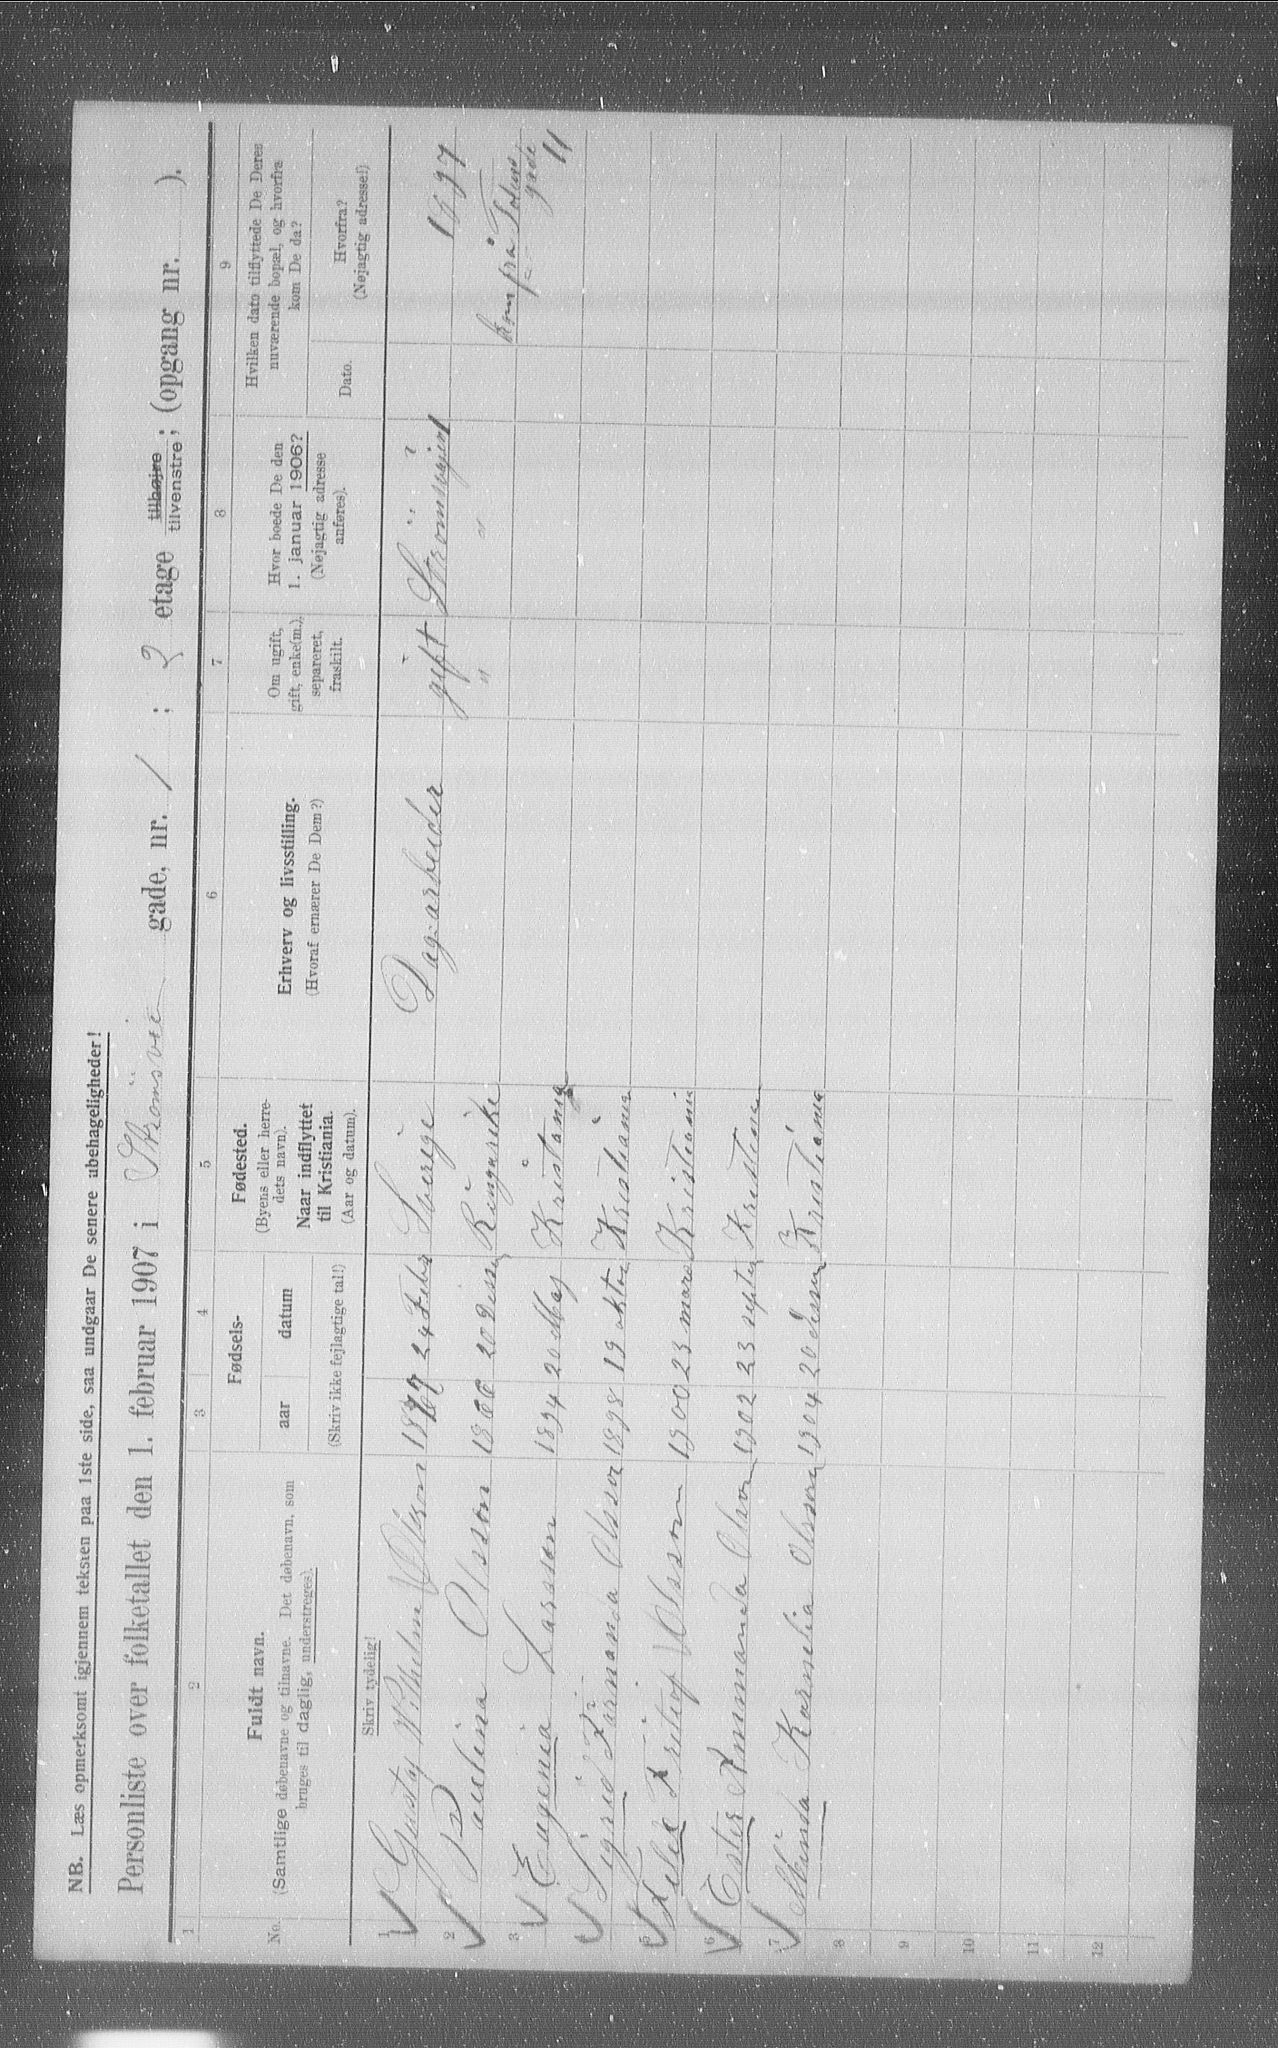 NB. Læs opmerksomt igjennem teksten paa 1ste side, saa undgaar De senere ubehageligheder!
Personliste over folketallet den 1. februar 1907 i Strömsvie gade, nr. 1; 2 etage tilhøjre; tilvenstre; (opgang nr. ).
1 2 3 4 5 6 7 8 9
No.
Fuldt navn.
(Samtlige døbenavne og tilnavne. Det døbenavn, som
bruges til daglig, understreges).
Fødsels-
aar datum
Fødested.
(Byens eller herre-
dets navn).
Naar indflyttet
til Kristiania.
(Aar og datum).
Erhverv og livsstilling.
(Hvoraf ernærer De Dem?)
Om ugift,
gift, enke(m.),
separeret,
fraskilt.
Hvor boede De den
1. januar 1906?
(Nøjagtig adresse
anføres).
Hvilken dato tilflyttede De Deres
nuværende bopæl, og hvorfra
kom De da?
Dato.
Hvorfra?
(Nøjagtig adresse!)
Skriv tydelig!
(Skriv ikke fejlagtige tal!)
1 Gustaf Wilhelm Olsson 24 Feb Sverige Dag-arbeider gift Strömsvejen 1 1897
2 Paulina Olsson 1866 20 Ringerike " " kom frå Totens
gade 11
3 Eugenia Larsson 1894 20 Maj Kristania
4 Sigrid Olsson 1898 19 oktor Kristiania
5 Felix Fritiof Olsson 1900 23 mars Kristiania
6 Ester Ammanda Olson 1902 23 septer Kristiania
7 Minda Karnelia Olsson 1904 20 Kristiania
8
9
10
11
12